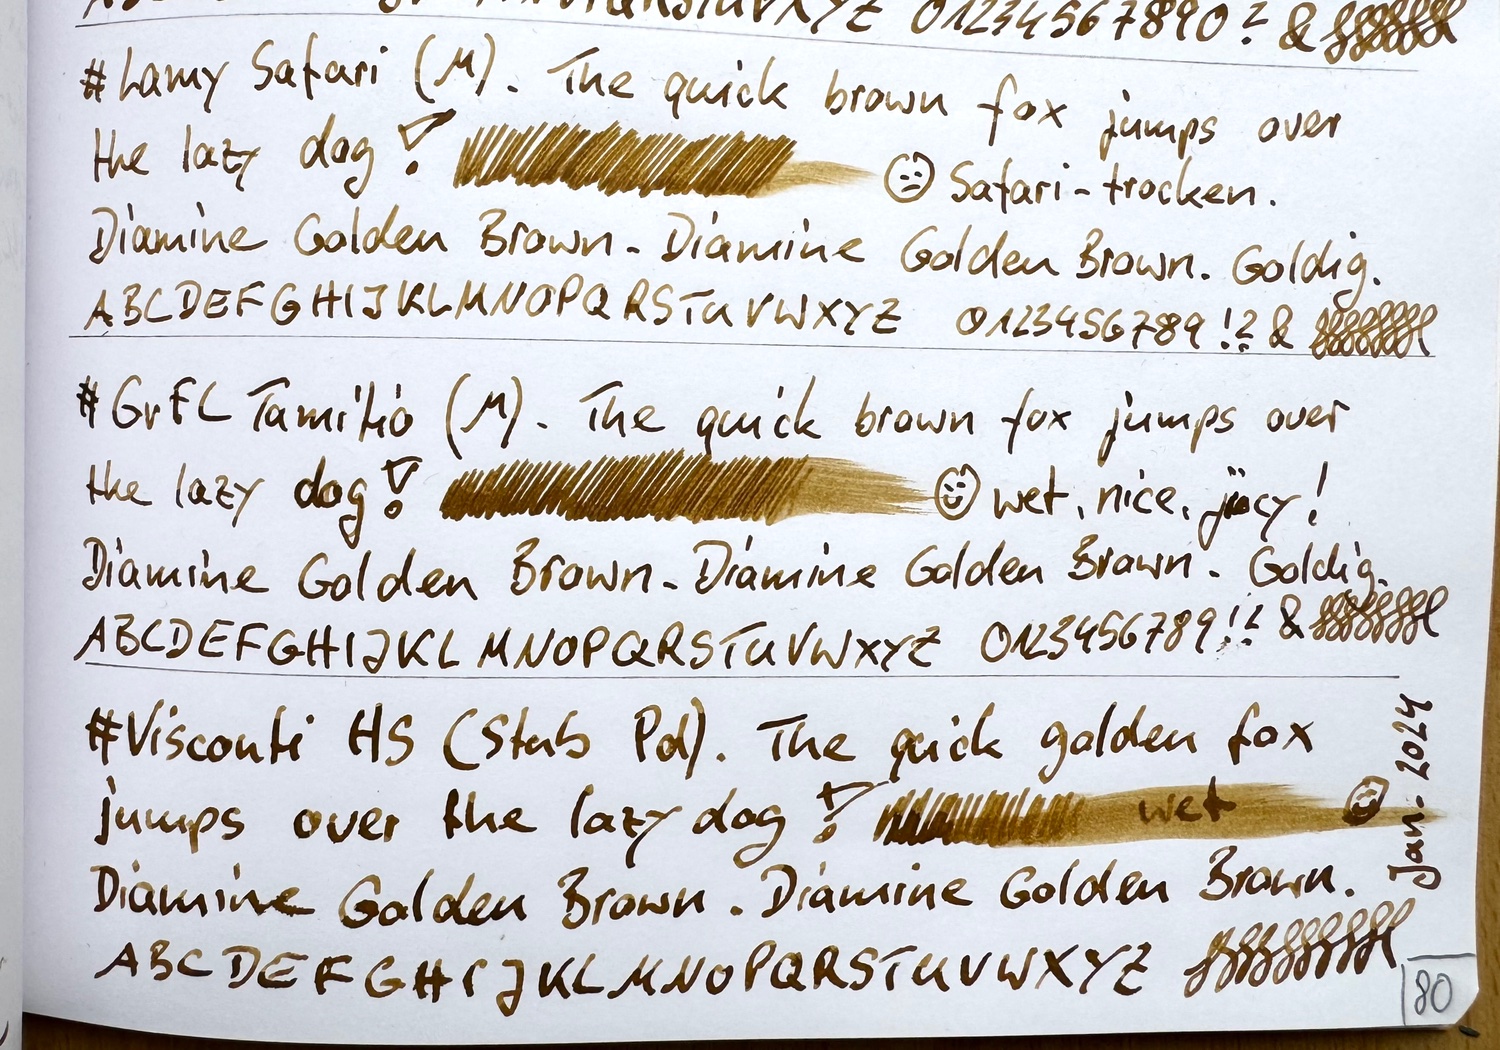 XYZ 01234567890 ? &
# Lamy Safari (M). The quick brown fox jumps over
the lazy dog! Safari-trocken.
Diamine Golden Brown - Diamine Golden Brown. Goldig.
ABCDEFGHIJKLMNOPQRSTUVWXYZ 0123456789 !? &
# GvFC Tamitio (M). The quick brown fox jumps over
the lazy dog! wet, nice, jücy!
Diamine Golden Brown - Diamine Golden Brown. Goldig.
ABCDEFGHIJKLMNOPQRSTUVWXYZ 0123456789 !? &
#Visconti HS (Stub Pd). The quick golden fox
jumps over the lazy dog! wet
Diamine Golden Brown. Diamine Golden Brown.
ABCDEFGHIJKLMNOPQRSTUVWXYZ
Jan. 2024
80